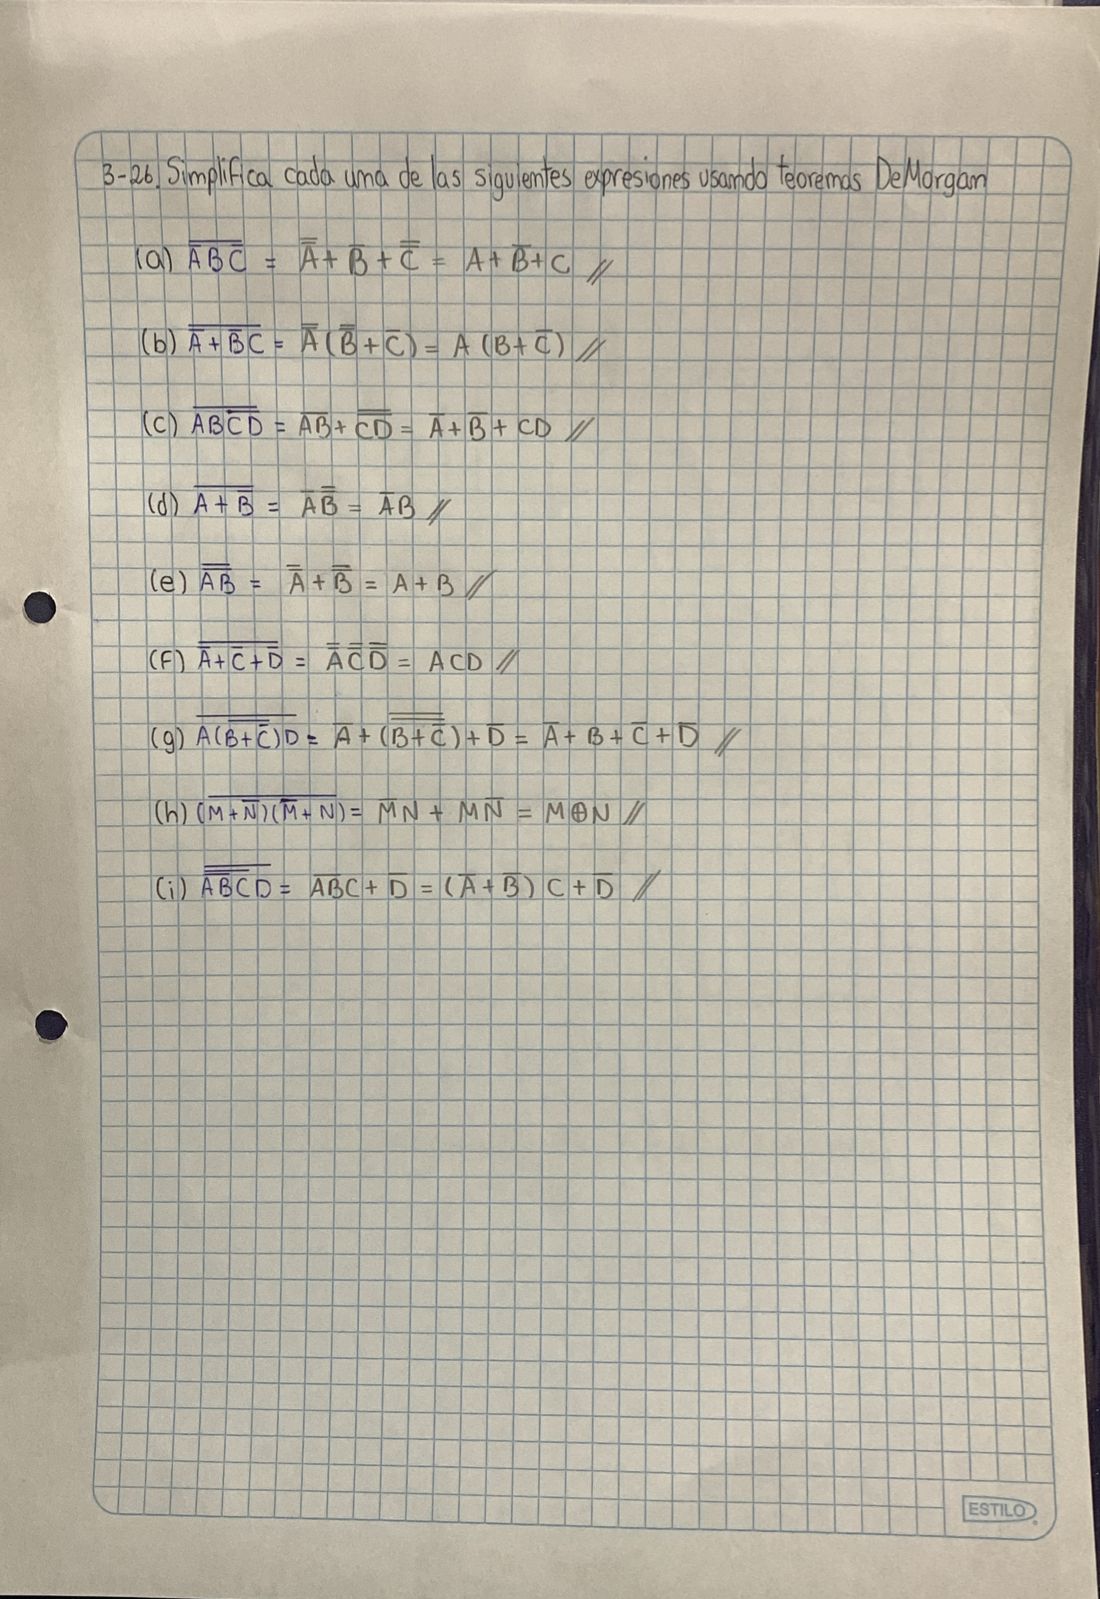 3-26. Simplifica cada una de las siguientes expresiones usando teoremas DeMorgan
(a) \overline{\overline{A}B\overline{C}} = \overline{\overline{A}} + \overline{B} + \overline{\overline{C}} = A + \overline{B} + C //
(b) \overline{\overline{A} + \overline{B}C} = \overline{\overline{A}} (\overline{\overline{B}} + \overline{C}) = A (B + \overline{C}) //
(c) \overline{AB\overline{CD}} = \overline{AB} + \overline{\overline{CD}} = \overline{A} + \overline{B} + CD //
(d) \overline{A + \overline{B}} = \overline{A}\overline{\overline{B}} = \overline{A}B //
(e) \overline{\overline{A}\overline{B}} = \overline{\overline{A}} + \overline{\overline{B}} = A + B //
(f) \overline{\overline{A} + \overline{C} + \overline{D}} = \overline{\overline{A}}\overline{\overline{C}}\overline{\overline{D}} = ACD //
(g) \overline{A(\overline{B + \overline{C}})D} = \overline{A} + (\overline{\overline{B + \overline{C}}}) + \overline{D} = \overline{A} + B + \overline{C} + \overline{D} //
(h) \overline{(M + \overline{N})(\overline{M} + N)} = \overline{M}N + M\overline{N} = M⊕N //
(i) \overline{\overline{\overline{AB}C}D} = \overline{AB}C + \overline{D} = (\overline{A} + \overline{B}) C + \overline{D} //
ESTILO